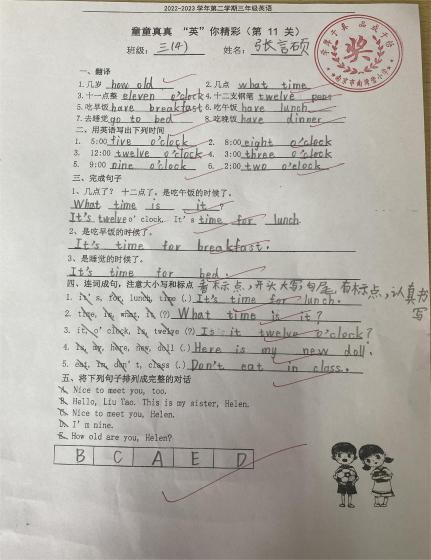 2022-2023 学年第二学期三年级英语
童童真真 “英”你精彩（第 11 关）
班级： 三(4) 姓名： 张言硕
奖
一、翻译
1.几岁 how old 2.几点 what time
3.十一点整 eleven o'clock 4.十二支钢笔 twelve pens
5.吃早饭 have breakfast 6.吃午饭 have lunch
7.去睡觉 go to bed 8.吃晚饭 have dinner
二、用英语写出下列时间
1. 5:00 five o'clock 2. 8:00 eight o'clock
3. 12:00 twelve o'clock 4. 3:00 three o'clock
5. 9:00 nine o'clock 6. 2:00 two o'clock
三、完成句子
1、几点了？ 十二点了。是吃午饭的时候了。
What time is it ?
It's twelve o' clock. It' s time for lunch.
2、是吃早饭的时候了。
It's time for breakfast.
3、是睡觉的时候了。
It's time for bed.
四、连词成句，注意大小写和标点 看标点，开头大写，句尾有标点，认真书写
1. it's, for, lunch, time (.) It's time for lunch.
2. time, is, what, it (?) What time is it?
3. it, o'clock, is, twelve (?) Is it twelve o'clock?
4. is, my, here, new, doll (.) Here is my new doll.
5. eat, in, don't, class (.) Don't eat in class.
五、将下列句子排列成完整的对话
A. Nice to meet you, too.
B. Hello, Liu Tao. This is my sister, Helen.
C. Nice to meet you, Helen.
D. I'm nine.
E. How old are you, Helen?
B C A E D